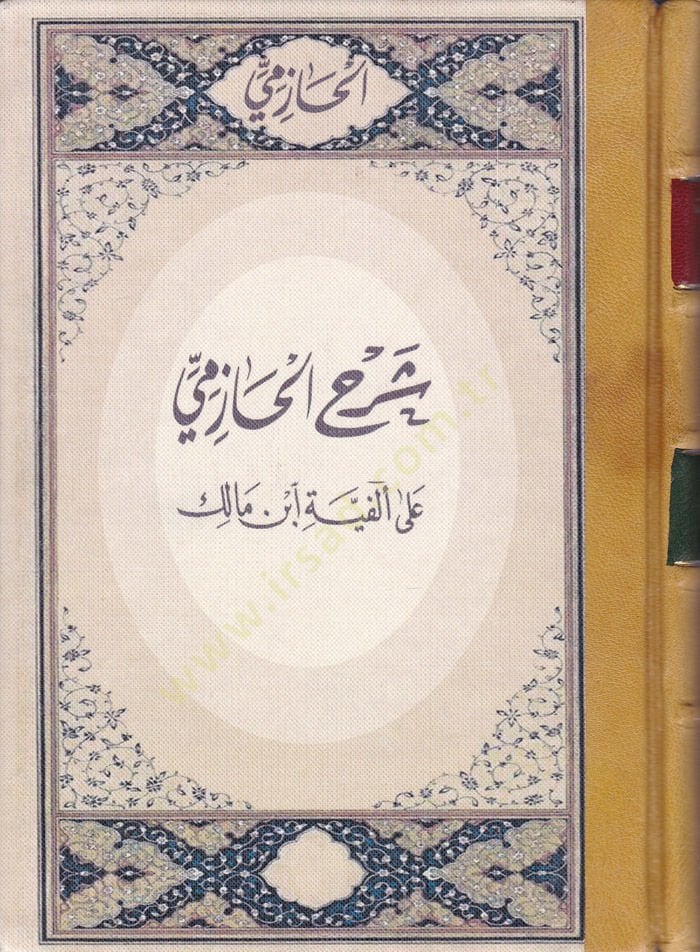 الْحَازِمِيّ
شَرْحُ الْحَازِمِيّ
عَلَى أَلْفِيَّةِ ابْنِ مَالِك
www.irsad.com.tr